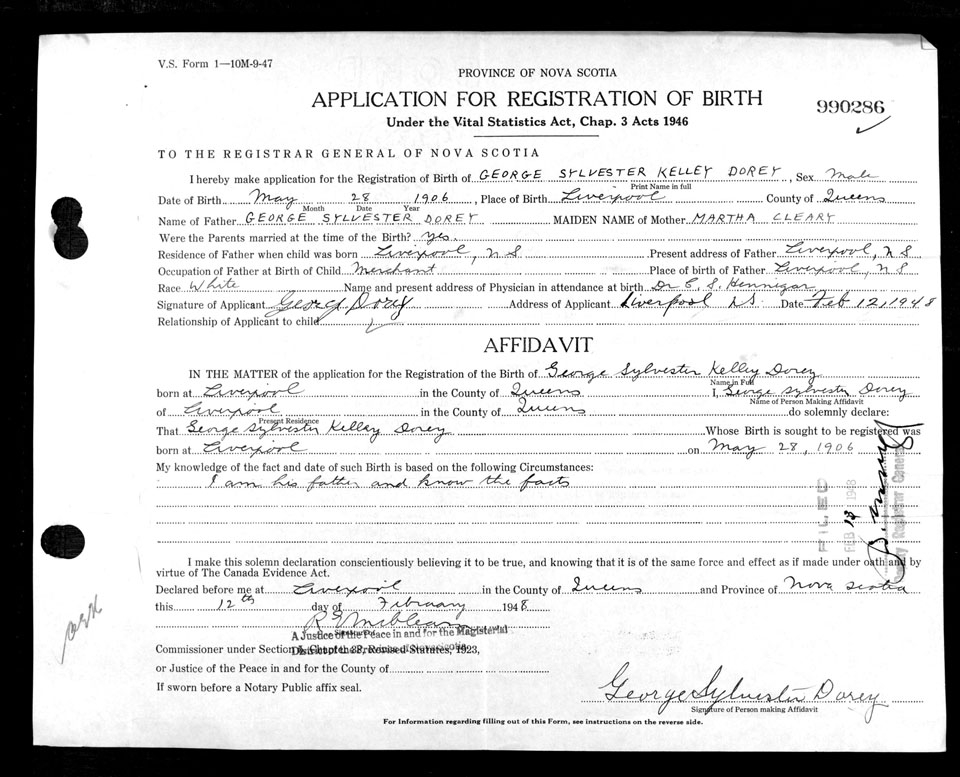 V.S. Form 1—10M-9-47
PROVINCE OF NOVA SCOTIA
APPLICATION FOR REGISTRATION OF BIRTH
990286
Under the Vital Statistics Act, Chap. 3 Acts 1946
TO THE REGISTRAR GENERAL OF NOVA SCOTIA
I hereby make application for the Registration of Birth of GEORGE SYLVESTER KELLEY DOREY, Sex Male
Print Name in full
Date of Birth May 28 1906, Place of Birth Liverpool County of Queens
Month Date Year
Name of Father GEORGE SYLVESTER DOREY MAIDEN NAME of Mother MARTHA CLEARY
Were the Parents married at the time of the Birth? yes.
Residence of Father when child was born Liverpool, N S Present address of Father Liverpool, N S
Occupation of Father at Birth of Child Merchant Place of birth of Father Liverpool, N S
Race White Name and present address of Physician in attendance at birth Dr E. S. Hennigar
Signature of Applicant George Dorey Address of Applicant Liverpool N.S. Date Feb 12, 1948
Relationship of Applicant to child
AFFIDAVIT
IN THE MATTER of the application for the Registration of the Birth of George Sylvester Kelley Dorey
Name in Full
born at Liverpool in the County of Queens I, George Sylvester Dorey
Name of Person Making Affidavit
of Liverpool in the County of Queens do solemnly declare:
Present Residence
That George Sylvester Kelley Dorey Whose Birth is sought to be registered was
born at Liverpool on May 28, 1906
My knowledge of the fact and date of such Birth is based on the following Circumstances:
I am his father and know the facts
FILED
FEB 13 1948
Deputy Registrar General
I make this solemn declaration conscientiously believing it to be true, and knowing that it is of the same force and effect as if made under oath and by
virtue of The Canada Evidence Act.
Declared before me at Liverpool in the County of Queens and Province of Nova Scotia
this 12th day of February 1948
A Justice of the Peace in and for the Magisterial
Commissioner under Section 1, Chapter 38, Revised Statutes, 1923,
or Justice of the Peace in and for the County of
If sworn before a Notary Public affix seal.
George Sylvester Dorey
Signature of Person making Affidavit
For Information regarding filling out of this Form, see instructions on the reverse side.